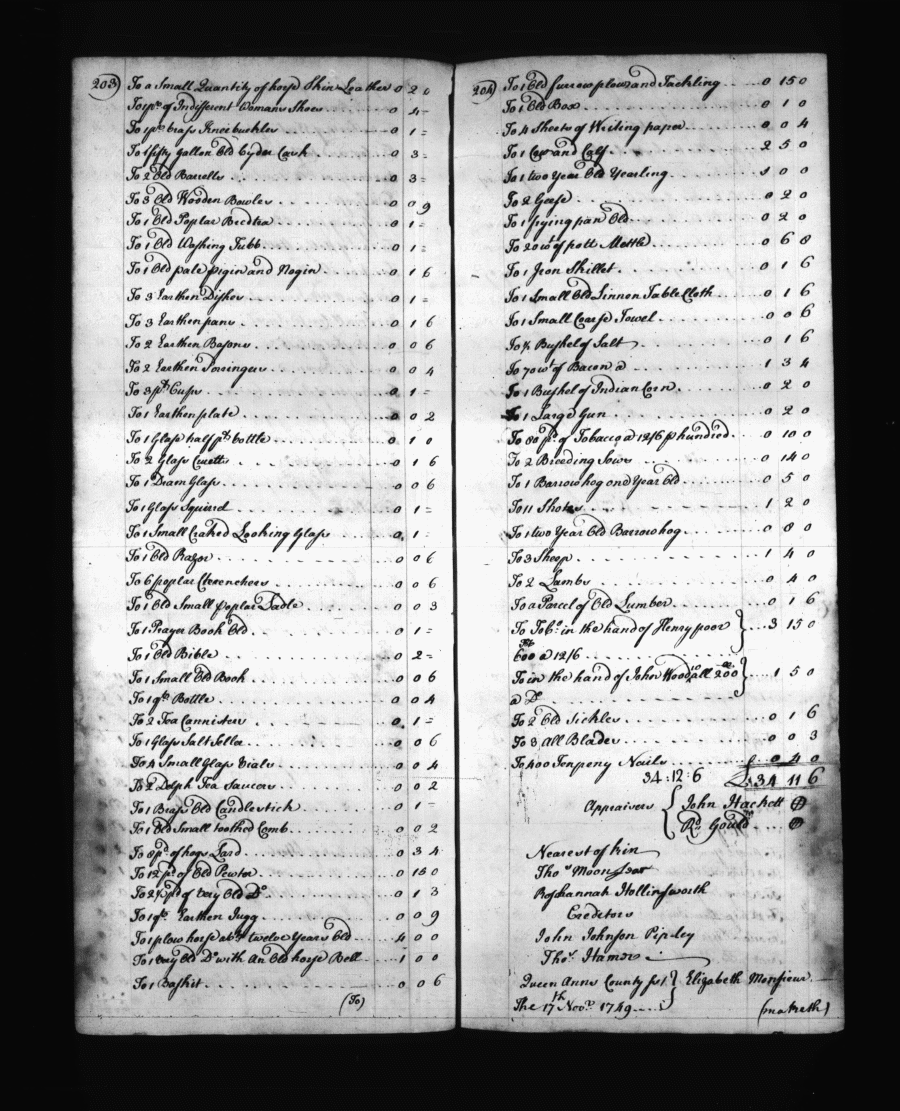 203
To a Small Quantity of horse Skin Leather 0 2 0
To 1 pr. of Indifferent Womans Shoes 0 4 =
To 1 pr. brass Kneebuckles 0 1 =
To 1 fifty gallon Old Cyder Cask 0 3 =
To 2 Old Barrells 0 3 =
To 3 Old Wooden Bowles 0 0 9
To 1 Old Poplar 0 1 =
To 1 Old Washing Tubb 0 1 =
To 1 Old pale pigin and Nogin 0 1 6
To 3 Earthen Dishes 0 1 =
To 3 Earthen pans 0 1 6
To 2 Earthen Basons 0 0 6
To 2 Earthen Poringers 0 0 4
To 3 pt. Cups 0 1 =
To 1 Earthen plate 0 0 2
To 1 Glass half pt. bottle 0 1 0
To 2 Glass Cruetts 0 1 6
To 1 Dram Glass 0 0 6
To 1 Glass Squired 0 1 =
To 1 Small Craked Looking Glass 0 1 =
To 1 Old Razor 0 0 6
To 6 poplar 0 0 6
To 1 Old Small poplar Ladle 0 0 3
To 1 Prayer Book Old 0 1 =
To 1 Old Bible 0 2 =
To 1 Small Old Book 0 0 6
To 1 qt. Bottle 0 0 4
To 2 Tea Cannisters 0 1 =
To 1 Glass Salt Seller 0 0 6
To 4 Small Glass Vials 0 0 4
To 2 Delph Tea Saucers 0 0 2
To 1 Brass Old Candlestick 0 1 =
To 1 Old Small toothed Comb 0 0 2
To 8 pd. of hogs Lard 0 3 4
To 12 pd. of Old Pewter
To 2½ pd. of very Old Do. 0 1 3
To 1 qt. Earthen Jugg 0 0 9
To 1 plow horse abt. twelve Years Old 4 0 0
To 1 very Old Do. with An Old horse Bell 1 0 0
To 1 Baskit 0 0 6
(To)
204
To 1 Old furrow plow and Tackling 0 15 0
To 1 Old Box 0 1 0
To 4 Sheets of Writing paper 0 0 4
To 1 Cow and Calf 2 5 0
To 1 two Year Old Yearling 1 0 0
To 2 Geese 0 2 0
To 1 frying pan Old 0 2 0
To 20 wt. of pott Mettle 0 6 8
To 1 Iron Skillet 0 1 6
To 1 Small Old Linnen Table Cloth 0 1 6
To 1 Small Coarse Towel 0 0 6
To ½ Bushel of Salt 0 1 6
To 70 wt. of Bacon @ 1 3 4
To 1 Bushel of Indian Corn 0 2 0
To 1 Large Gun 0 2 0
To 80 pd. of Tobacco @ 12/6 p hundred 0 10 0
To 2 Breeding Sows 0 14 0
To 1 Barrow hog one Year Old 0 5 0
To 11 Shotes 1 2 0
To 1 two Year Old Barrow hog 0 8 0
To 3 Sheep 1 4 0
To 2 Lambs 0 4 0
To a Parcel of Old Lumber 0 1 6
To Tobo. in the hand of Henry poor 3 15 0
600 @ 12/6
To in the hand of John Woodall 200 1 5 0
@ Do.
To 2 Old Sickles 0 1 6
To 3 All Blades 0 0 3
To 400 Tenpeny Nails 0 4 0
34:12:6 £34 11 6
Appraisers John Hackett
Rd. Gould
Nearest of kin
Thos. Moon
Roshannah Hollinsworth
Creditors
John Johnson Pipley
Thos. Hamer
Queen Anns County sst. Elizabeth Monsieur
The 17th Novr. 1749
(maketh)